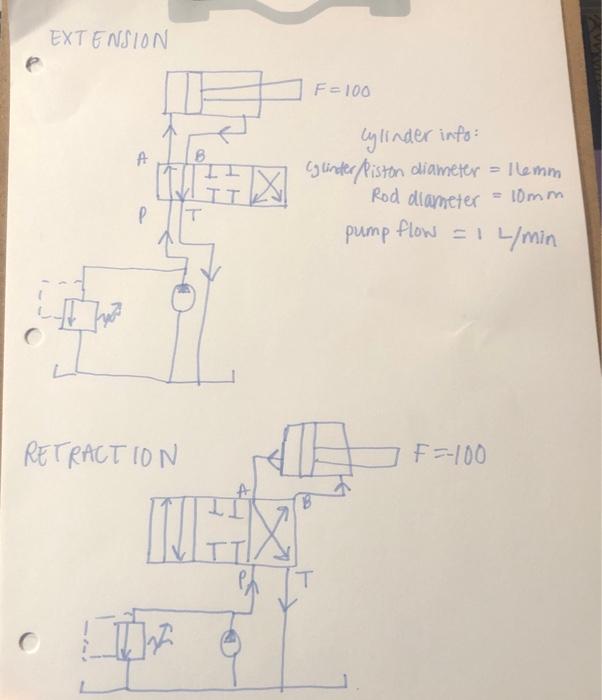 EXTENSION
F=100
cylinder info:
A
B
cylinder/Piston diameter = 16mm
Rod diameter = 10mm
P
T
pump flow = 1 L/min
RETRACTION
F=-100
A
B
P
T